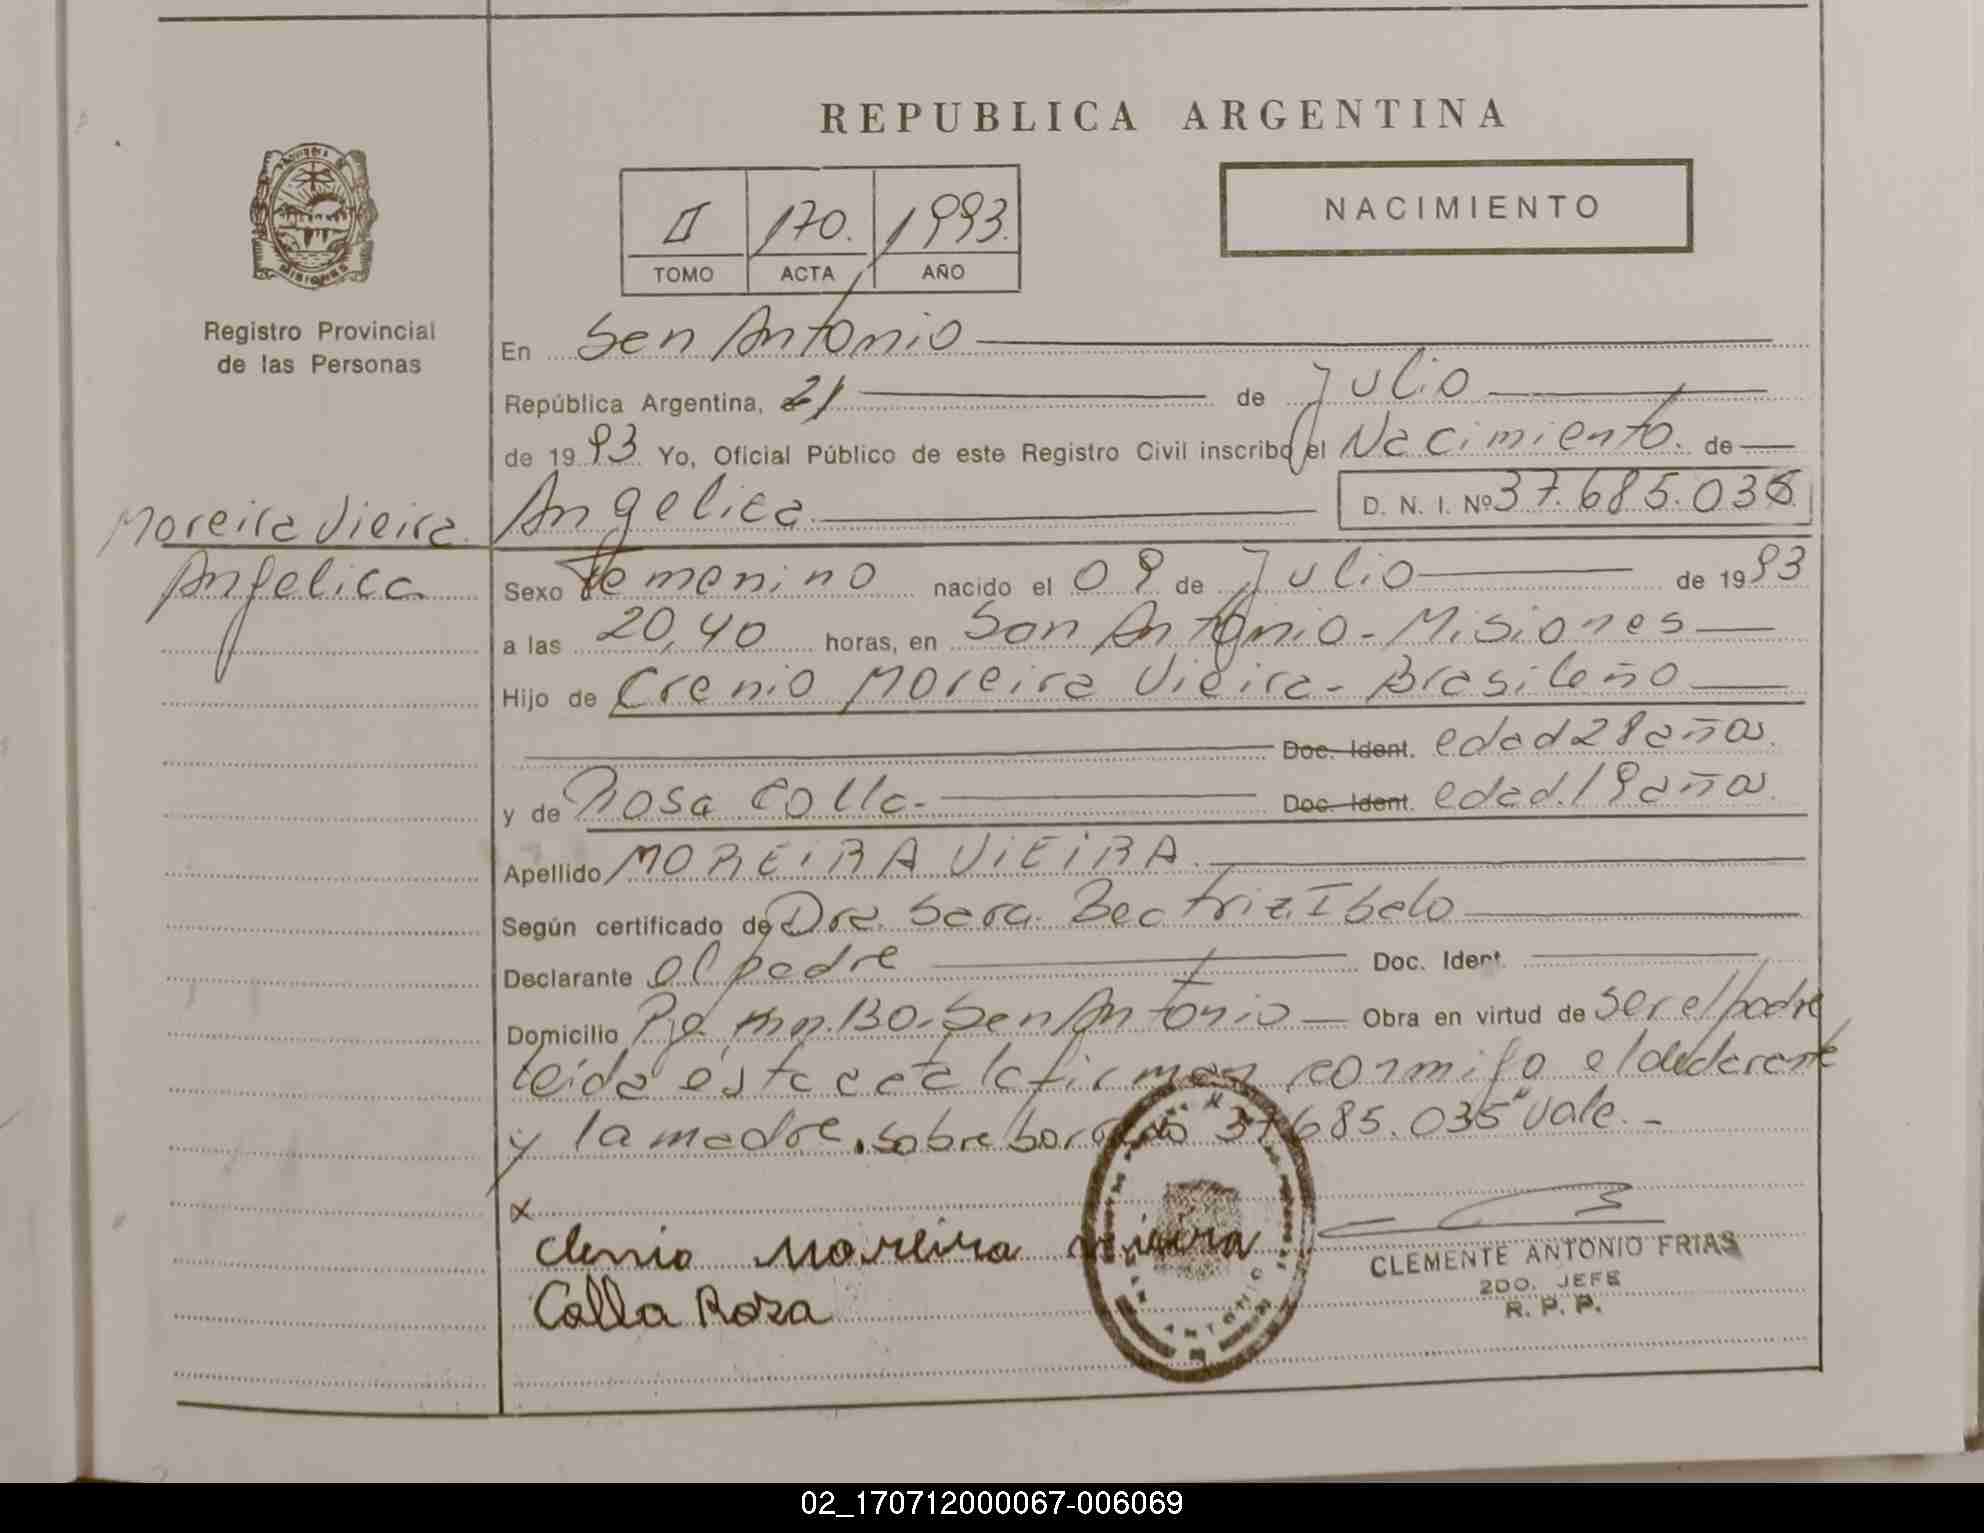 REPUBLICA ARGENTINA
II 170. 1993.
TOMO ACTA AÑO
NACIMIENTO
MISIONES
Registro Provincial
de las Personas
En San Antonio
República Argentina, a 21 de Julio
de 1993 Yo, Oficial Público de este Registro Civil inscribo el Nacimiento. de
Moreira Vieira.
Angelica
Angelica
D. N. I. Nº 37.685.035
Sexo Femenino nacido el 09 de Julio de 1993
a las 20,40 horas, en San Antonio - Misiones
Hijo de Crenio Moreira Vieira - Brasileño
Doc. Ident. edad 28 años.
y de Rosa Colla - Doc. Ident. edad. 19 años.
Apellido MOREIRA VIEIRA.
Según certificado de Dra. Sara Beatriz Ibelo
Declarante el padre Doc. Ident.
Domicilio San Antonio Obra en virtud de ser el padre
leida ésta acta la firman conmigo el declarante
y la madre. sobre borrado 37.685.035" vale. -
x
Clenio Moreira Vieira
Colla Rosa
ANTONIO
CLEMENTE ANTONIO FRIAS
2DO. JEFE
R. P. P.
02_170712000067-006069